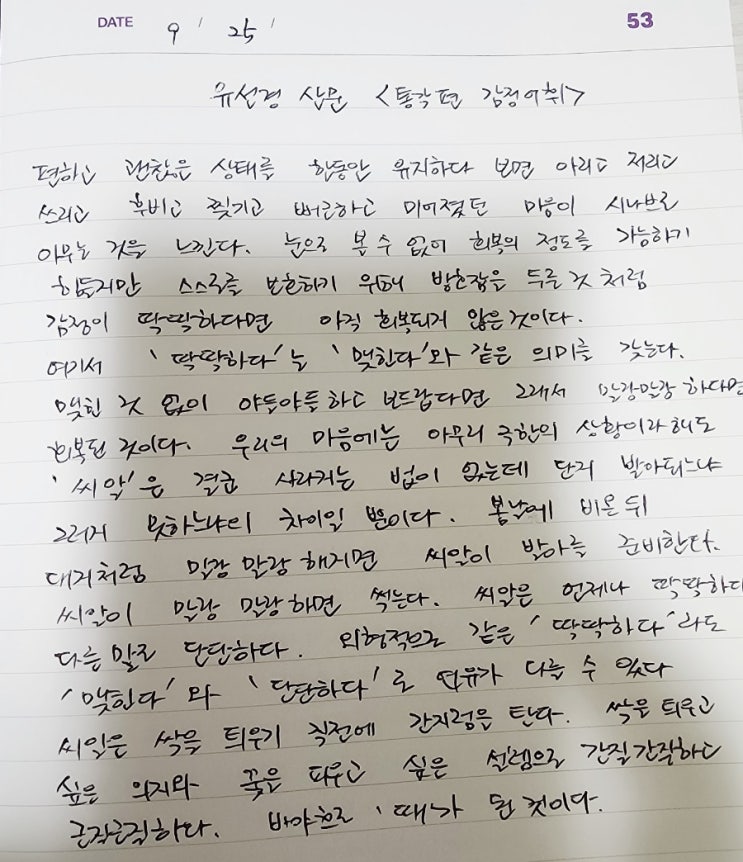 DATE 9 / 25 / 53
유선경 산문 <통각편 감정어휘>
편하고 괜찮은 상태를 한동안 유지하다 보면 아리고 저리고
쓰리고 후비고 찢기고 뻐근하고 미어졌던 마음이 시나브로
아무는 것을 느낀다. 눈으로 볼 수 없어 회복의 정도를 가늠하기
힘들지만 스스로를 보호하기 위해 방호장을 두른 것처럼
감정이 딱딱하다면 아직 회복되지 않은 것이다.
여기서 '딱딱하다'는 '맺힌다'와 같은 의미를 갖는다.
맺힌 것 없이 야들야들하고 보드랍다면 그래서 말랑말랑하다면
회복된 것이다. 우리의 마음에는 아무리 극한의 상황이라 해도
'씨앗'은 결코 사라지는 법이 없는데 단지 발아되느냐
그러지 못하느냐의 차이일 뿐이다. 봄날에 비온 뒤
대지처럼 말랑 말랑 해지면 씨앗이 발아를 준비한다.
씨앗이 말랑 말랑하면 썩는다. 씨앗은 언제나 딱딱하다
다른 말로 단단하다. 외형적으로 같은 '딱딱하다'라도
'맺힌다'와 '단단하다'로 연유가 다를 수 있다
씨앗은 싹을 틔우기 직전에 간지럼을 탄다. 싹을 틔우고
싶은 의지와 꽃을 피우고 싶은 설렘으로 간질간질하고
근질근질하다. 바야흐로 '때'가 된 것이다.